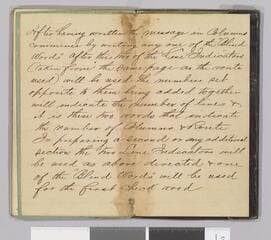 After having written the message in Columns
commence by writing any one of the "Blind
Words" After this two of the Line Indicators
(taken from the same page as the word
used) will be used the numbers set
opposite to them being added together
will indicate the number of lines &
it is these two words that indicate
the number of Columns & Route
In preparing a second or any additional
section the two Line Indicators will
be used as above directed & one
of the Blind Words will be used
for the first check word